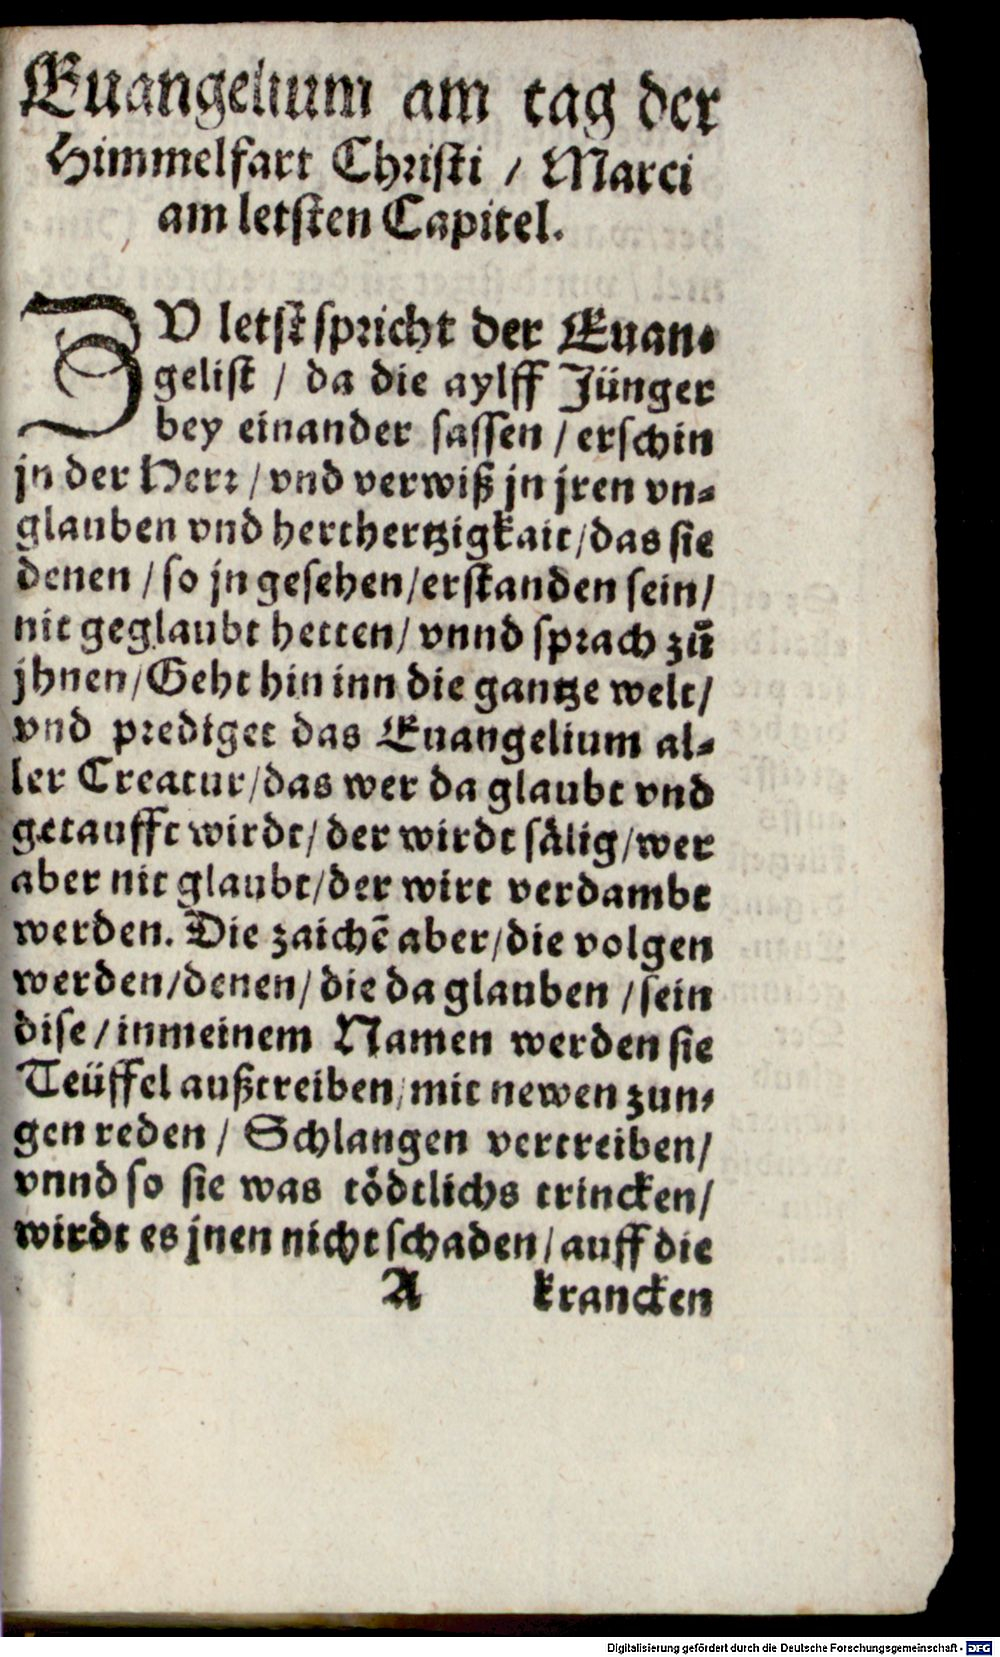 Euangelium am tag der
Himmelfart Christi / Marci
am letsten Capitel.
ZV letst spricht der Euan-
gelist / da die aylff Jünger
bey einander sassen / erschin
jn der Herr / vnd verwiß jn jren vn-
glauben vnd herthertzigkait / das sie
denen / so jn gesehen / erstanden sein /
nit geglaubt hetten / vnnd sprach zů
jhnen / Geht hin inn die gantze welt /
vnd prediget das Euangelium al-
ler Creatur / das wer da glaubt vnd
getaufft wirdt / der wirdt sälig / wer
aber nit glaubt / der wirt verdambt
werden. Die zaichē aber / die volgen
werden / denen / die da glauben / sein
dise / inmeinem Namen werden sie
Teüffel außtreiben / mit newen zun-
gen reden / Schlangen vertreiben /
vnnd so sie was tödtlichs trincken /
wirdt es jnen nicht schaden / auff die
A krancken
Digitalisierung gefördert durch die Deutsche Forschungsgemeinschaft - DFG